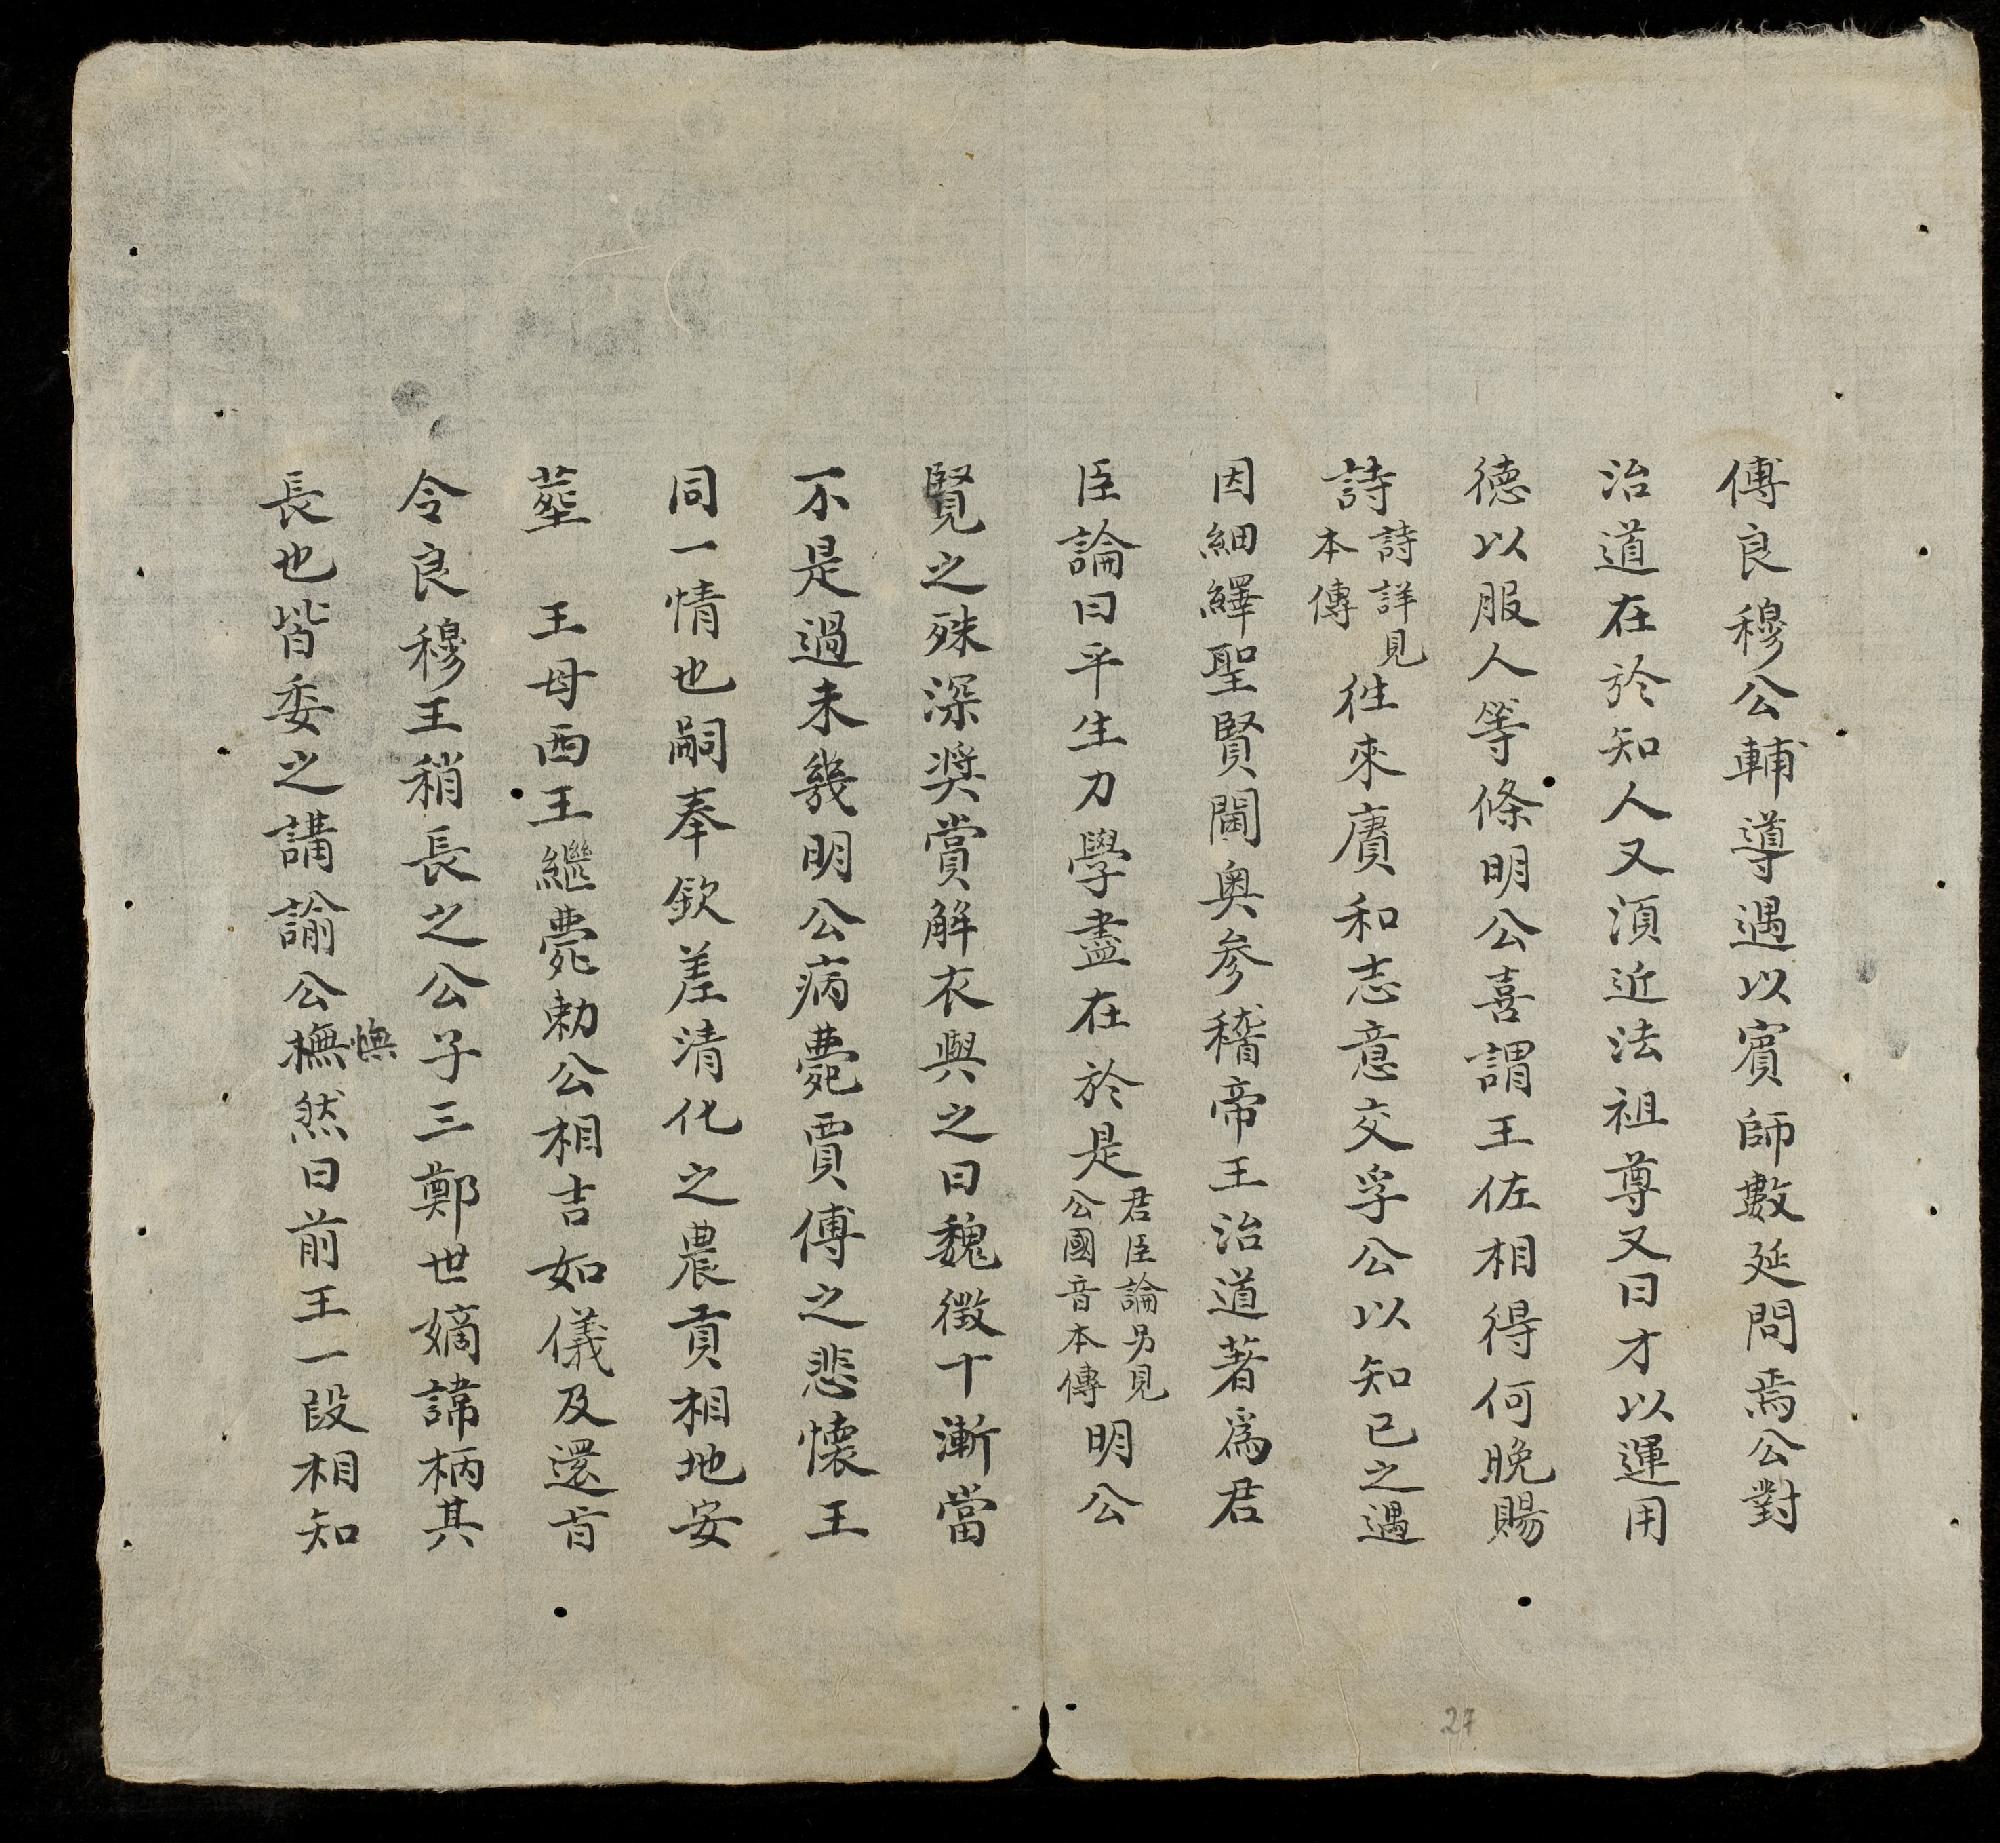 傅良穆公輔導遇以賓師數延問焉公對
治道在於知人又湏近法祖尊又曰才以運用
德以服人等條明公喜謂王佐相得何晚賜
詩詩詳見本傳徃來賡和志意交孚公以知已之遇
因細繹聖賢閫奥参稽帝王治道著爲君
臣論曰平生力學盡在於是君臣論另見公國音本傳明公
賢之殊深奨賞解衣與之曰魏徴十漸當
不是過未幾明公病薨賈傅之悲懐王
同一情也嗣奉欽差清化之農貢相地安
塟 王母西王繼薨勅公相吉如儀及還肯
令良穆王稍長之公子三鄭世嫡諱柄其
長也皆委之講諭公橅憮然曰前王一段相知
27